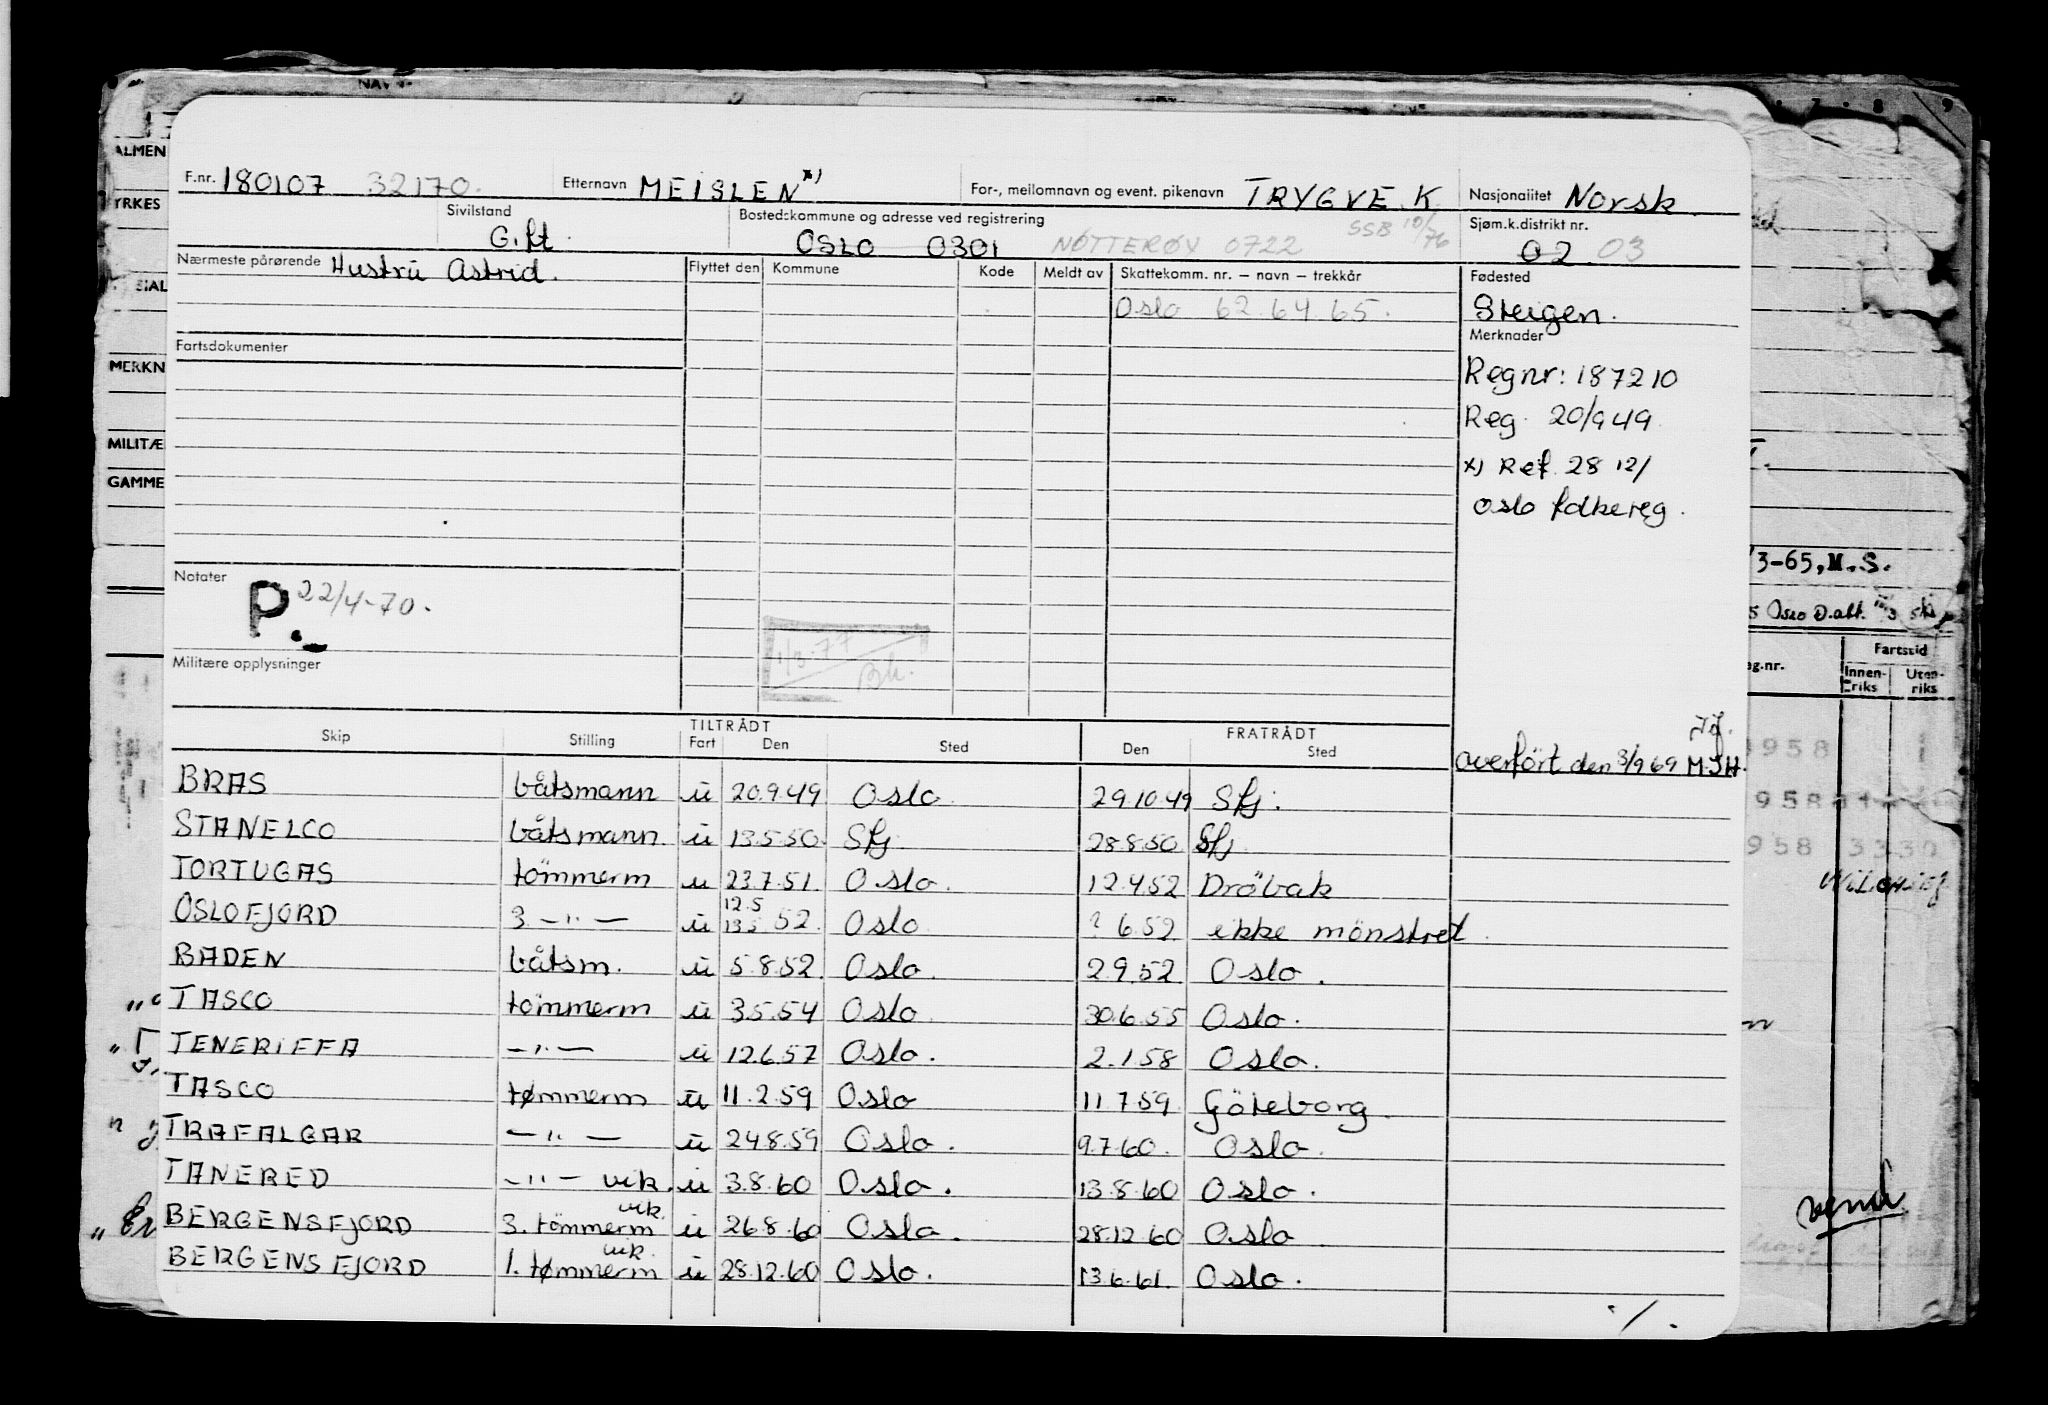 F.nr. 180107 32170. Etternavn MEISLEN x) For-, mellomnavn og event. pikenavn TRYGVE K. Nasjonalitet Norsk
Sivilstand Gift Bostedskommune og adresse ved registrering OSLO 0301 NÖTTERÖY 0722 SSB 10/76 Sjøm.k.distrikt nr. 02 03
Nærmeste pårørende Hustru Astrid. Flyttet den Kommune Kode Meldt av Skattekomm. nr. – navn – trekkår Fødested
Oslo 62 64 65. Steigen.
Fartsdokumenter Merknader
Regnr: 187210
Reg. 20/9 49
x) Ref. 28 12/
Oslo folkereg.
Notater
P. 22/4-70.
1/3-77
Bh.
Militære opplysninger
TILTRÅDT FRATRÅDT
Skip Stilling Fart Den Sted Den Sted
overført den 3/9 69 MJH.
BRAS båtsmann ü 20.9.49 Oslo 29.10.49 Sfj.
STANELCO båtsmann ü 13.5.50. Sfj. 28.8.50 Sfj
TORTUGAS tömmerm ü 23.7.51. Oslo. 12.4.52 Dröbak
OSLOFJORD 3. —"— ü 12.5 13.5 52. Oslo ? 6.52 ikke mönstret.
BADEN båtsm. ü 5.8.52. Oslo. 2.9.52 Oslo.
TASCO tömmerm ü 3.5.54 Oslo. 30.6.55 Oslo.
TENERIFFA —"— ü 12.6.57 Oslo. 2.1.58 Oslo.
TASCO tømmerm ü 11.2.59 Oslo 11.7.59. Göteborg.
TRAFALGAR —"— ü 24.8.59 Oslo. 9.7.60. Oslo.
TANERED —"— vik. ü 3.8.60 Oslo. 13.8.60 Oslo.
BERGENSFJORD 3. tömmerm vik. ü 26.8.60 Oslo. 28.12.60 Oslo
BERGENSFJORD 1. tømmerm vik. ü 28.12.60 Oslo. 13.6.61. Oslo.
./.
ALMEN
YRKES
SIAL
MERKN
MILITÆ
GAMME
7 8 9
3-65, M.S.
Oslo D.alt.
Fartstid
Innen- riks
Uten- riks
1958
958
958 3330
vend